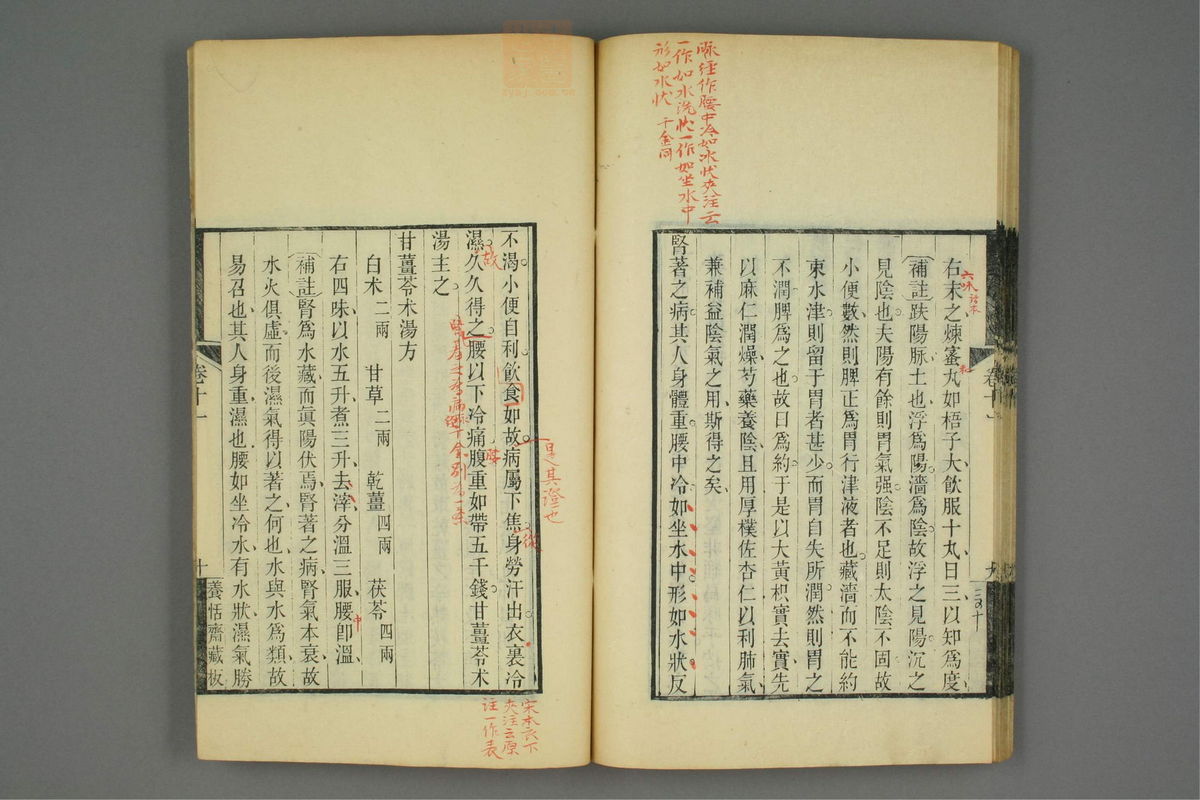 脉經作腰中冷如冰狀夾注云
一作如水洗狀一作如坐水中
形如水狀 千金同
右末之煉蜜丸如梧子大飲服十丸日三以知爲度
六味
補註趺陽脉土也浮爲陽濇爲陰故浮之見陽沉之
見陰也夫陽有餘則胃氣强陰不足則太陰不固故
小便數然則脾正爲胃行津液者也藏濇而不能約
束水津則留于胃者甚少而胃自失所潤然則胃之
不潤脾爲之也故曰爲約于是以大黃枳實去實先
以麻仁潤燥芍藥養陰且用厚樸佐杏仁以利肺氣
兼補益陰氣之用斯得之矣
腎著之病其人身體重腰中冷如坐水中形如水狀反
卷十一
九
不渴小便自利飲食如故病屬下焦身勞汗出衣裏冷
是其證也
從
濕久久得之腰以下冷痛腹重如帶五千錢甘薑苓朮
故
腰
湯主之
甘薑苓朮湯方
白朮二兩 甘草二兩 乾薑四兩 茯苓四兩
右四味以水五升煮三升去滓分溫三服腰卽溫
中
補註腎爲水藏而眞陽伏焉腎著之病腎氣本衰故
水火俱虛而後濕氣得以著之何也水與水爲類故
易召也其人身重濕也腰如坐冷水有水狀濕氣勝
卷十一
十
養恬齋藏板
宋本衣下
夾注云原
注一作表